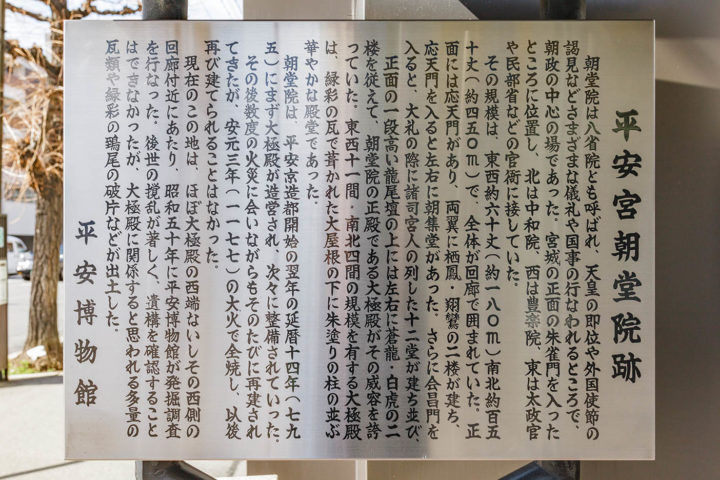 平安宮朝堂院跡
朝堂院は八省院とも呼ばれ、天皇の即位や外国使節の
謁見などさまざまな儀礼や国事の行なわれるところで、
朝政の中心の場であった。宮城の正面の朱雀門を入った
ところに位置し、北は中和院、西は豊楽院、東は太政官
や民部省などの官衙に接していた。
その規模は、東西約六十丈(約一八〇m)南北約百五
十丈(約四五〇m)で、全体が回廊で囲まれていた。正
面には応天門があり、両翼に栖鳳・翔鸞の二楼が建ち、
応天門を入ると左右に朝集堂があった。さらに会昌門を
入ると、大礼の際に諸司官人の列した十二堂が建ち並び、
正面の一段高い龍尾壇の上には左右に蒼龍・白虎の二
楼を従えて、朝堂院の正殿である大極殿がその威容を誇
っていた。東西十一間・南北四間の規模を有する大極殿
は、緑彩の瓦で葺かれた大屋根の下に朱塗りの柱の並ぶ
華やかな殿堂であった。
朝堂院は、平安京造都開始の翌年の延暦十四年(七九
五)にまず大極殿が造営され、次々に整備されていった。
その後数度の火災に会いながらもそのたびに再建され
てきたが、安元三年(一一七七)の大火で全焼し、以後
再び建てられることはなかった。
現在のこの地は、ほぼ大極殿の西端ないしその西側の
回廊付近にあたり、昭和五十年に平安博物館が発掘調査
を行なった。後世の撹乱が著しく、遺構を確認すること
はできなかったが、大極殿に関係すると思われる多量の
瓦類や緑彩の鴟尾の破片などが出土した。
平安博物館